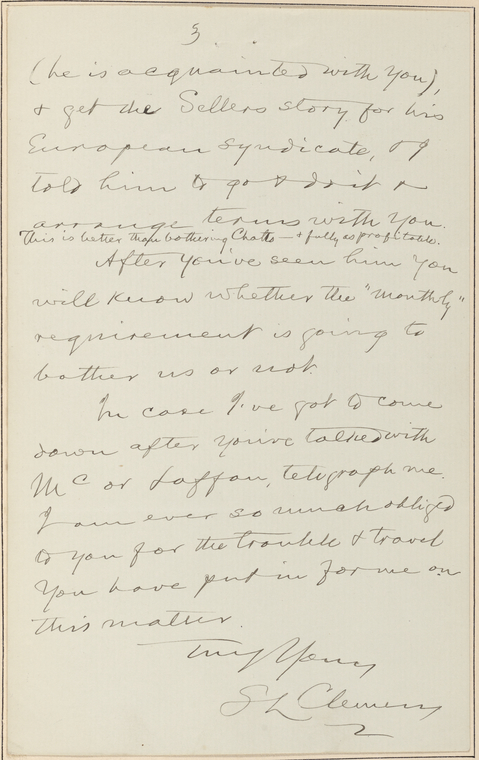 3
(he is acquainted with you),
& get the Sellers story for his
European syndicate, & I
told him to go & do it &
arrange terms with you.
This is better than bothering Chatto — & fully as profitable.
After you've seen him you
will know whether the "monthly"
requirement is going to
bother us or not.
In case I've got to come
down after you've talked with
Mc or Laffan, telegraph me.
I am ever so much obliged
to you for the trouble & travel
you have put in for me on
this matter.
Truly Yours
S L Clemens